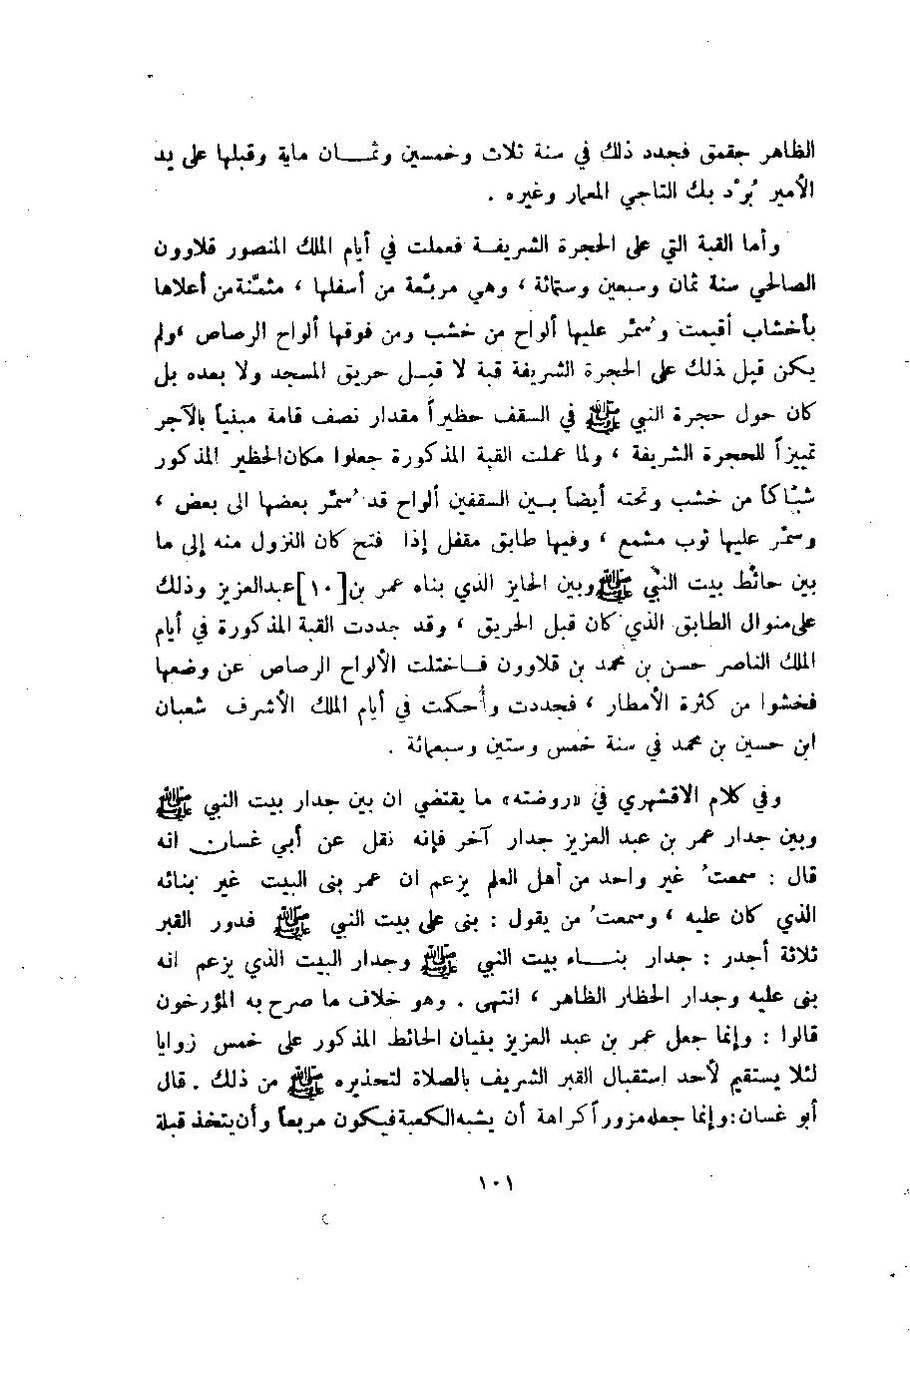 الظاهر جقمق فجدد ذلك في سنة ثلاث وخمسين وثمـــان ماية وقبلها على يد
الأمير بُردْ بك التاجي المعمار وغيره .
وأما القبة التي على الحجرة الشريفـة فعملت في أيام الملك المنصور قلاوون
الصالحي سنة ثمان وسبعين وستمائة ، وهي مربّعة من أسفلها ، مثمّنة من أعلاها
بأخشاب أقيمت وسُمّر عليها ألواح من خشب ومن فوقها ألواح الرصاص ،ولم
يكن قبل ذلك على الحجرة الشريفة قبة لا قبـل حريق المسجد ولا بعده بل
كان حول حجرة النبي ﷺ في السقف حظيراً مقدار نصف قامة مبنياً بالآجر
تمييزاً للحجرة الشريفة ، ولما عملت القبة المذكورة جعلوا مكان الحظير المذكور
شبّاكاً من خشب وتحته أيضاً بـين السقفين ألواح قد سُمّر بعضها الى بعض ،
وسمّر عليها ثوب مشمع ، وفيها طابق مقفل إذا فتح كان النزول منه إلى ما
بين حائط بيت النبي ﷺ وبين الحايز الذي بناه عمر بن[١٠]عبدالعزيز وذلك
على منوال الطابق الذي كان قبل الحريق ، وقد جددت القبة المذكورة في أيام
الملك الناصر حسن بن محمد بن قلاوون فـاختلت الألواح الرصاص عن وضعها
فخشوا من كثرة الأمطار ، فجددت وأُحكمت في أيام الملك الأشرف شعبان
ابن حسين بن محمد في سنة خمس وستين وسبعمائة .
وفي كلام الاقشهري في «روضته» ما يقتضي ان بين جدار بيت النبي ﷺ
وبين جدار عمر بن عبد العزيز جدار آخر فإنه نقل عن أبي غسان انه
قال : سمعتُ غير واحد من أهل العلم يزعم ان عمر بنى البيت غير بنائه
الذي كان عليه ، وسمعتُ من يقول : بنى على بيت النبي ﷺ فدور القبر
ثلاثة أجدر : جدار بنـــاء بيت النبي ﷺ وجدار البيت الذي يزعم انه
بنى عليه وجدار الحظار الظاهر ، انتهى . وهو خلاف ما صرح به المؤرخون
قالوا : وإنما جعل عمر بن عبد العزيز بنيان الحائط المذكور على خمس زوايا
لئلا يستقيم لأحد استقبال القبر الشريف بالصلاة لتحذيره ﷺ من ذلك . قال
أبو غسان:وإنما جعله مزوراً كراهة أن يشبه الكعبة فيكون مربعاً وأن يتخذ قبلة
١٠١